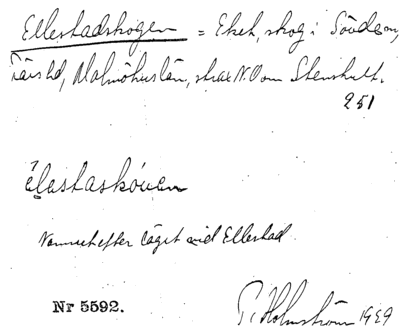 Ellestadskogen = Ekeh, skog i Sövde sn,
Färs hd, Malmöhus län, strax N.O om Stenshult.
251
élestaskóuen
Namnet efter läget vid Ellestad.
Nr 5592.
T. Holmström 1929